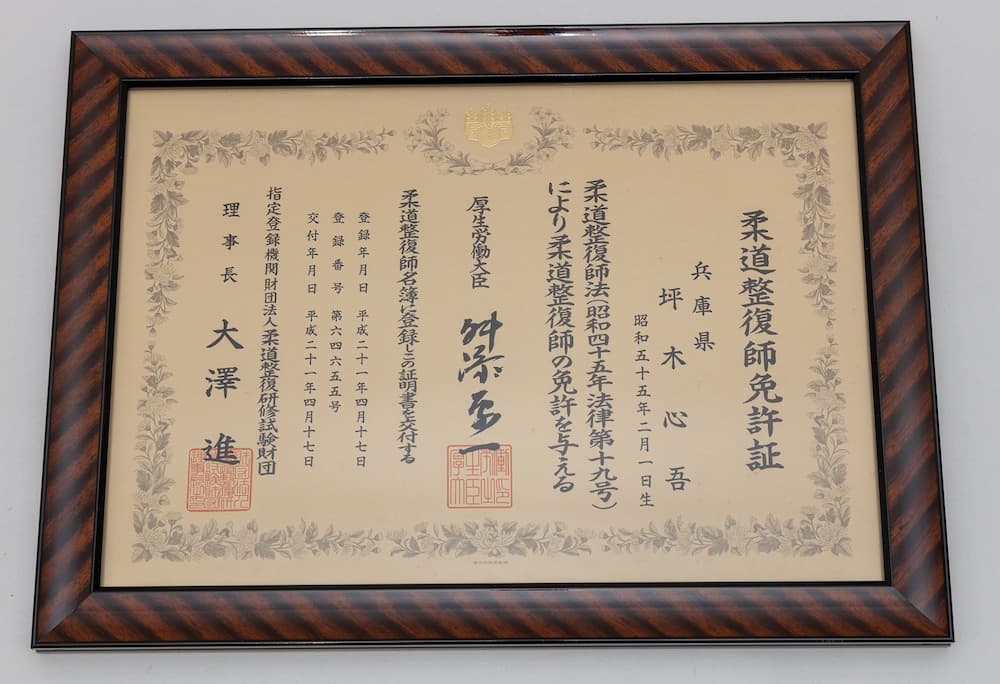 柔道整復師免許証
兵庫県
坪木心吾
昭和五十五年二月一日生
柔道整復師法(昭和四十五年法律第十九号)
により柔道整復師の免許を与える
厚生労働大臣 舛添要一
柔道整復師名簿に登録しこの証明書を交付する
登録年月日 平成二十一年四月十七日
登録番号 第六四六五五号
交付年月日 平成二十一年四月十七日
指定登録機関財団法人柔道整復研修試験財団
理事長 大澤進